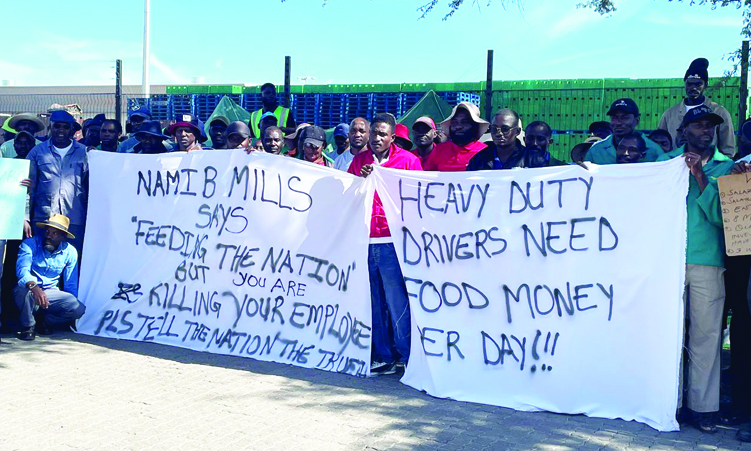 NAMIB MILLS
SAYS
"FEEDING THE NATION"
BUT YOU ARE
KILLING YOUR EMPLOYEE
PLS TELL THE NATION THE TRUTH
HEAVY DUTY
DRIVERS NEED
FOOD MONEY
ER DAY!!!
SALAR
SALA